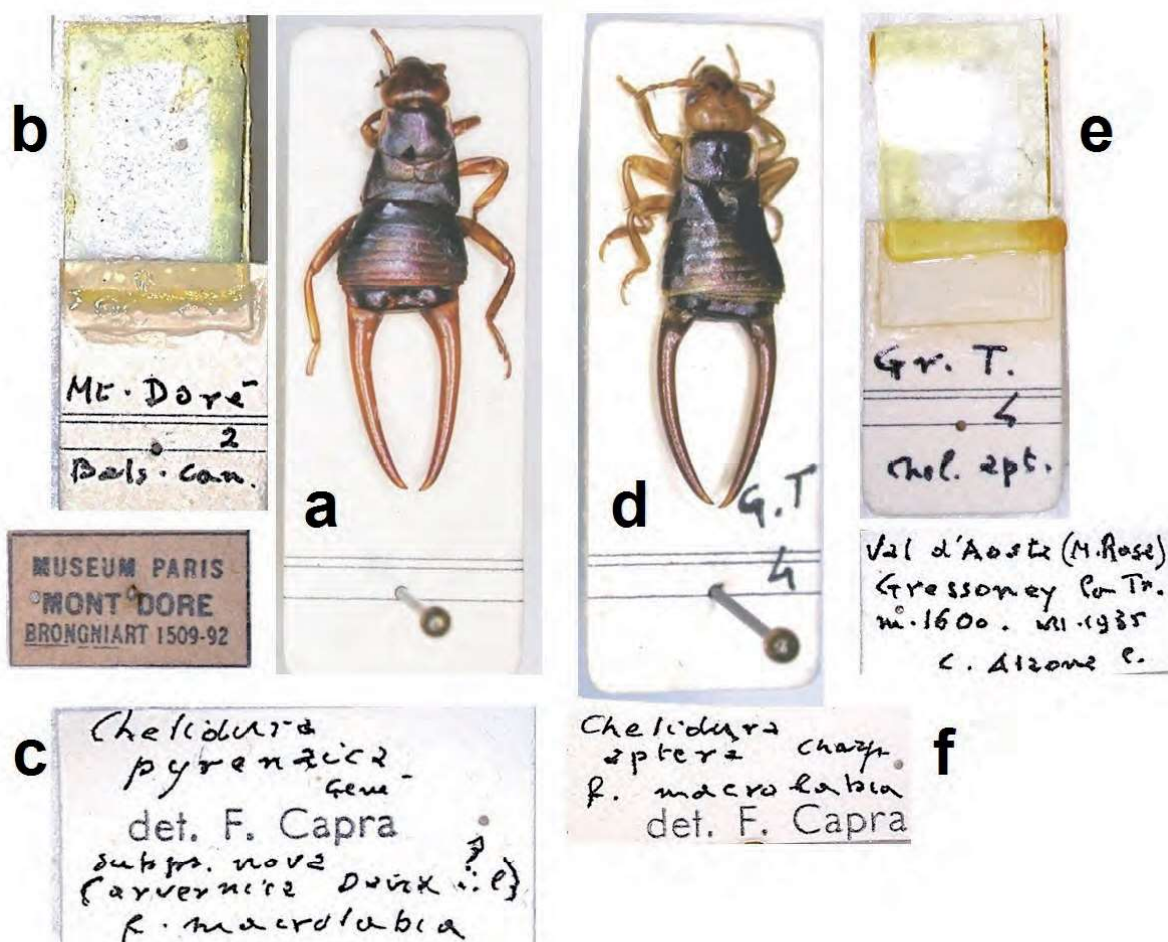 b
Mt. Doré
2
Bals. can.
MUSEUM PARIS
MONT DORE
BRONGNIART 1509-92
a
d
G.T
4
e
Gr. T.
4
chel. apt.
Val d'Aosta (M. Rosa)
Gressoney la Tr.
m. 1600. VII-1935
C. Alzona l.
c
Chelidura
pyrenaica
Gené
det. F. Capra
subsp. nova ?
(arvernica Devix i. l.)
f. macrolabia
Chelidura
aptera Charp.
f. macrolabia
det. F. Capra
f